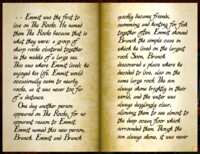 .. Emmit was the first to
live on The Rocks. He named
them The Rocks because that
is what they were: a group of
sharp rocks clustered together
in the middle of a large sea.
This was where Emmit lived; he
enjoyed his life. Emmit would
occasionally swim to nearby
rocks, as it was never too far
of a distance.
One day another person
appeared on The Rocks, for an
so apparent reason as Emmit.
Emmit named this new person,
Brunch. Emmit and Brunch
quickly became friends,
swimming and hunting for fish
together often. Emmit showed
Brunch the simple cave in
which he lived on the largest
rock. Soon, Brunch
discovered a place where he
decided to live, also on the
same large rock. The sun
always shone brightly in their
world, and the water was
always dazzlingly clear,
allowing them to see almost to
the deep ocean floor which
surrounded them. Though the
sun always shone, it was never